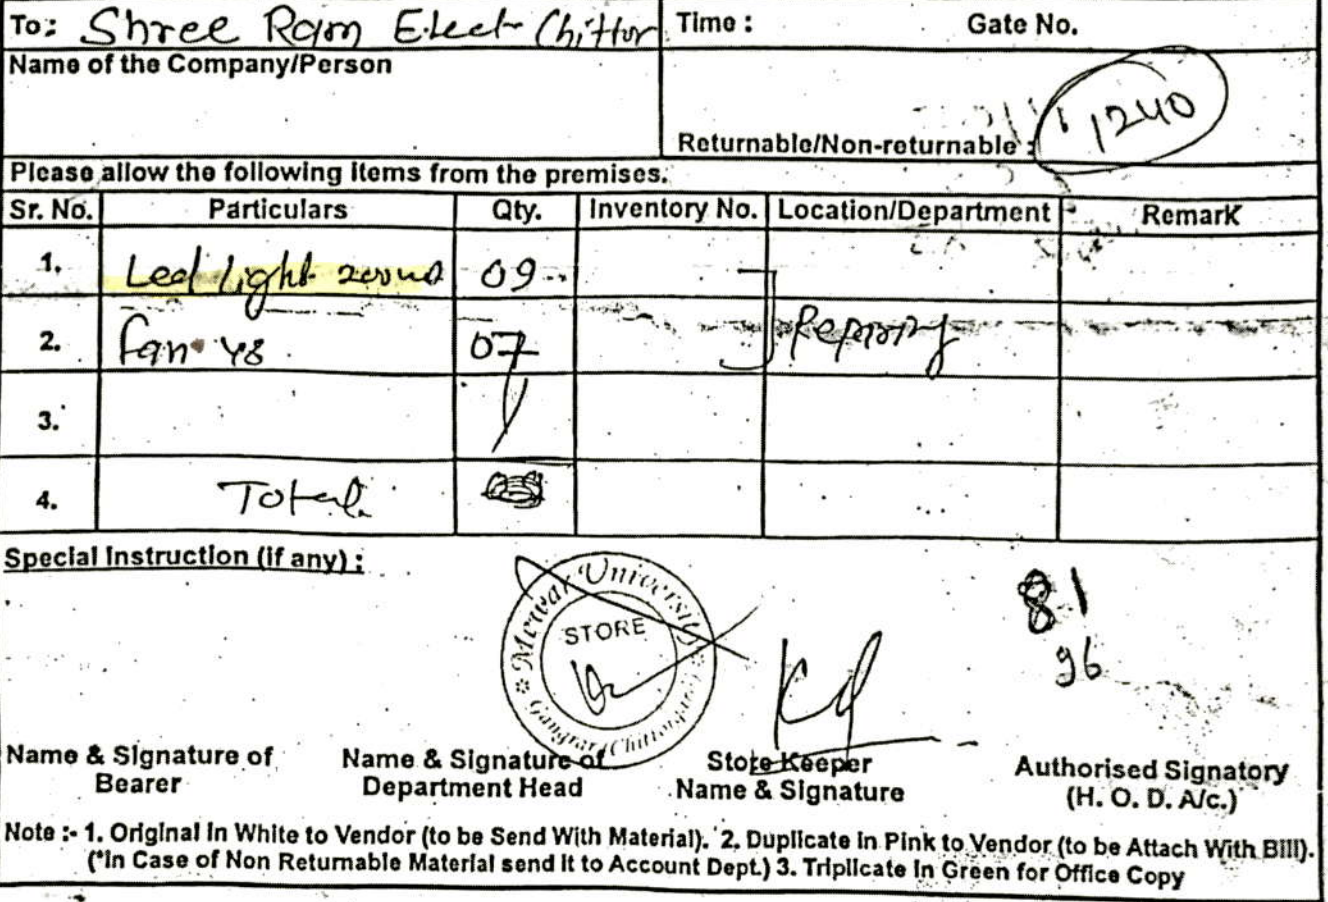 To: Shree Ram Elect Chittor Time : Gate No.
Name of the Company/Person
1240
Returnable/Non-returnable :
Please allow the following items from the premises.
Sr. No. Particulars Qty. Inventory No. Location/Department Remark
1. Led light 09
2. fan 48 07
3.
4. Total
Special Instruction (if any) :
Mewar University
STORE
Gangrar, Chittorgarh
81
96
Name & Signature of Bearer
Name & Signature of Department Head
Store Keeper Name & Signature
Authorised Signatory (H. O. D. A/c.)
Note :- 1. Original in White to Vendor (to be Send With Material). 2. Duplicate in Pink to Vendor (to be Attach With Bill).
(*In Case of Non Returnable Material send it to Account Dept.) 3. Triplicate in Green for Office Copy